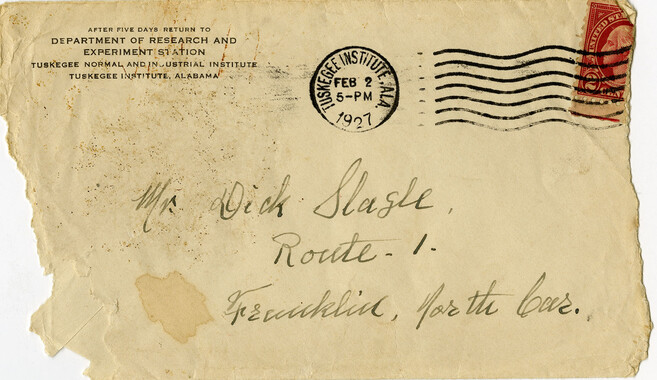 AFTER FIVE DAYS RETURN TO
DEPARTMENT OF RESEARCH AND
EXPERIMENT STATION
TUSKEGEE NORMAL AND INDUSTRIAL INSTITUTE
TUSKEGEE INSTITUTE, ALABAMA
TUSKEGEE INSTITUTE, ALA.
FEB 2
5-PM
1927
Mr. Dick Slagle,
Route - 1.
Franklin, North Car.